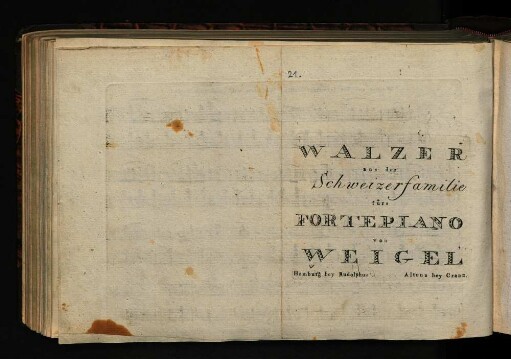 21.
WALZER
aus der
Schweizerfamilie
fürs
FORTEPIANO
von
WEIGEL
Hamburg bey Rudolphus Altona bey Cranz.